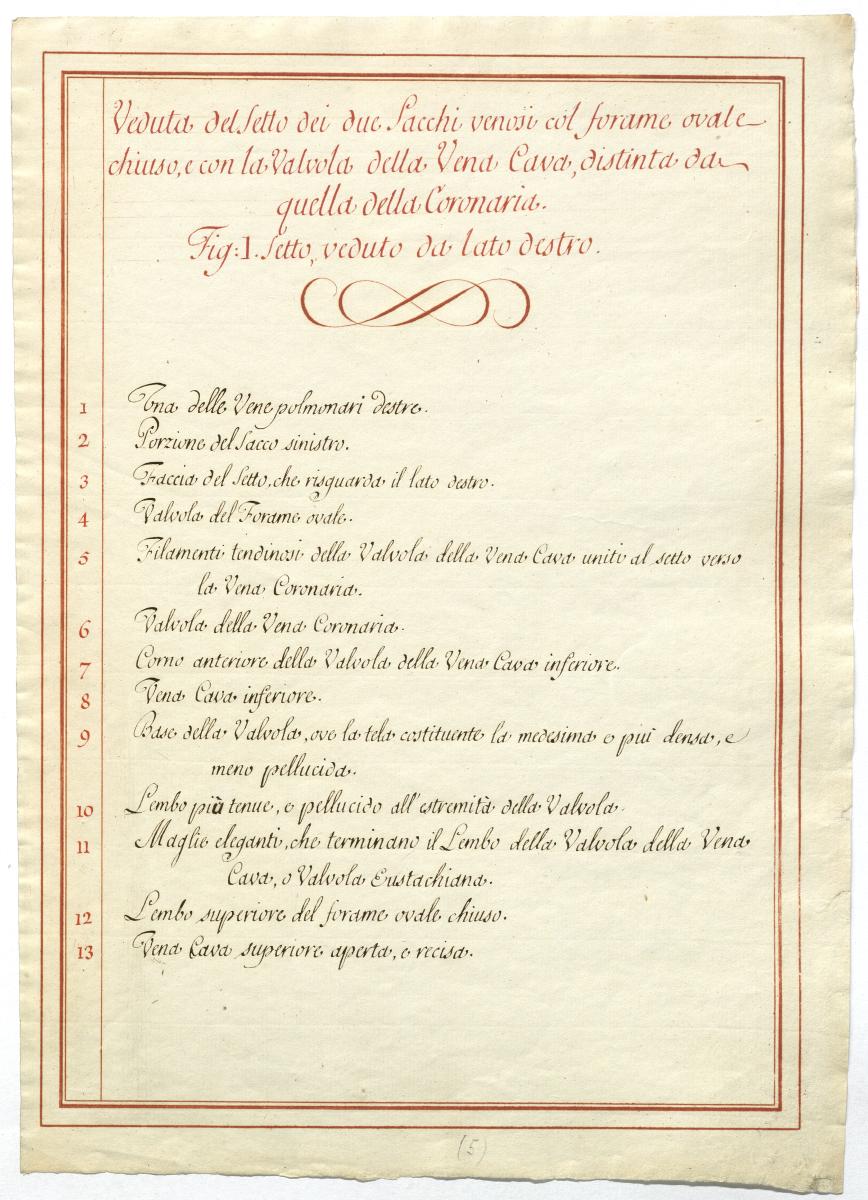 Veduta del Setto dei due Sacchi venosi col forame ovale
chiuso, e con la Valvola della Vena Cava, distinta da
quella della Coronaria.
Fig: I. Setto, veduto da lato destro.
1 Una delle Vene polmonari destre.
2 Porzione del Sacco sinistro.
3 Faccia del Setto, che risguarda il lato destro.
4 Valvola del Forame ovale.
5 Filamenti tendinosi della Valvola della Vena Cava uniti al setto verso
la Vena Coronaria.
6 Valvola della Vena Coronaria.
7 Corno anteriore della Valvola della Vena Cava inferiore.
8 Vena Cava inferiore.
9 Base della Valvola, ove la tela costituente la medesima e più densa, e
meno pellucida.
10 Lembo più tenue, e pellucido all'estremità della Valvola.
11 Maglie eleganti, che terminano il Lembo della Valvola della Vena
Cava, o Valvola Eustachiana.
12 Lembo superiore del forame ovale chiuso.
13 Vena Cava superiore aperta, e recisa.
(5)